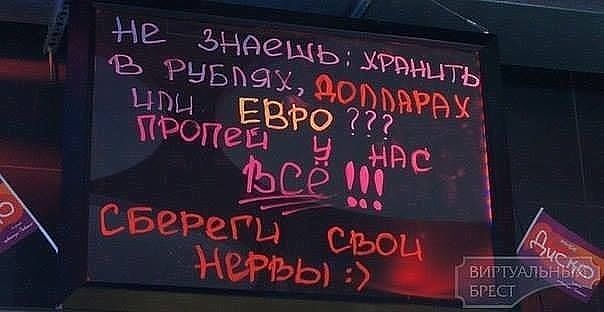 НЕ ЗНАЕШЬ: ХРАНИТЬ
В РУБЛЯХ, ДОЛЛАРАХ
ИЛИ ЕВРО ???
ПРОПЕЙ У НАС
ВСЁ !!!
СБЕРЕГИ СВОИ
НЕРВЫ :)
ДИСКО
ВИРТУАЛЬНЫЙ
БРЕСТ